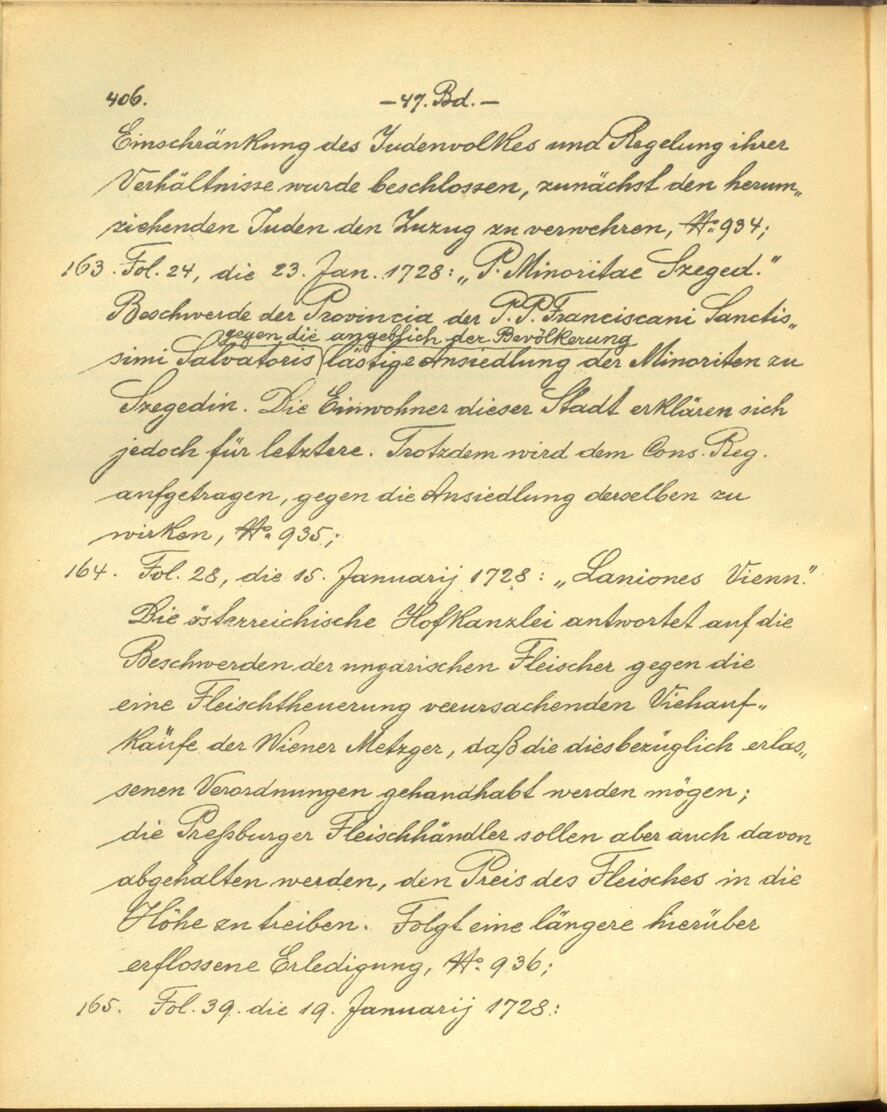 406. — 47. Bd. —
Einschränkung des Judenvolkes und Regelung ihrer
Verhältnisse wurde beschlossen, zunächst den herum„
ziehenden Juden den Zuzug zu verwehren, No 934;
163. Fol. 24, die 23. Jan. 1728: „P. Minoritae Szeged.“
Beschwerde der Provincia der P.P. Franciscani Sanctis„
gegen die angeblich der Bevölkerung
simi Salvatoris lästige Ansiedlung der Minoriten zu
Szegedin. Die Einwohner dieser Stadt erklären sich
jedoch für letztere. Trotzdem wird dem Cons. Reg.
aufgetragen, gegen die Ansiedlung derselben zu
wirken, No 935;
164. Fol. 28, die 15. Januarij 1728: „Laniones Vienn.“
Die österreichische Hofkanzlei antwortet auf die
Beschwerden der ungarischen Fleischer gegen die
eine Fleischtheuerung verursachenden Viehauf„
käufe der Wiener Metzger, daß die diesbezüglich erlas„
senen Verordnungen gehandhabt werden mögen;
die Preßburger Fleischhändler sollen aber auch davon
abgehalten werden, den Preis des Fleisches in die
Höhe zu treiben. Folgt eine längere hierüber
erflossene Erledigung, No 936;
165. Fol. 39. die 19. Januarij 1728: